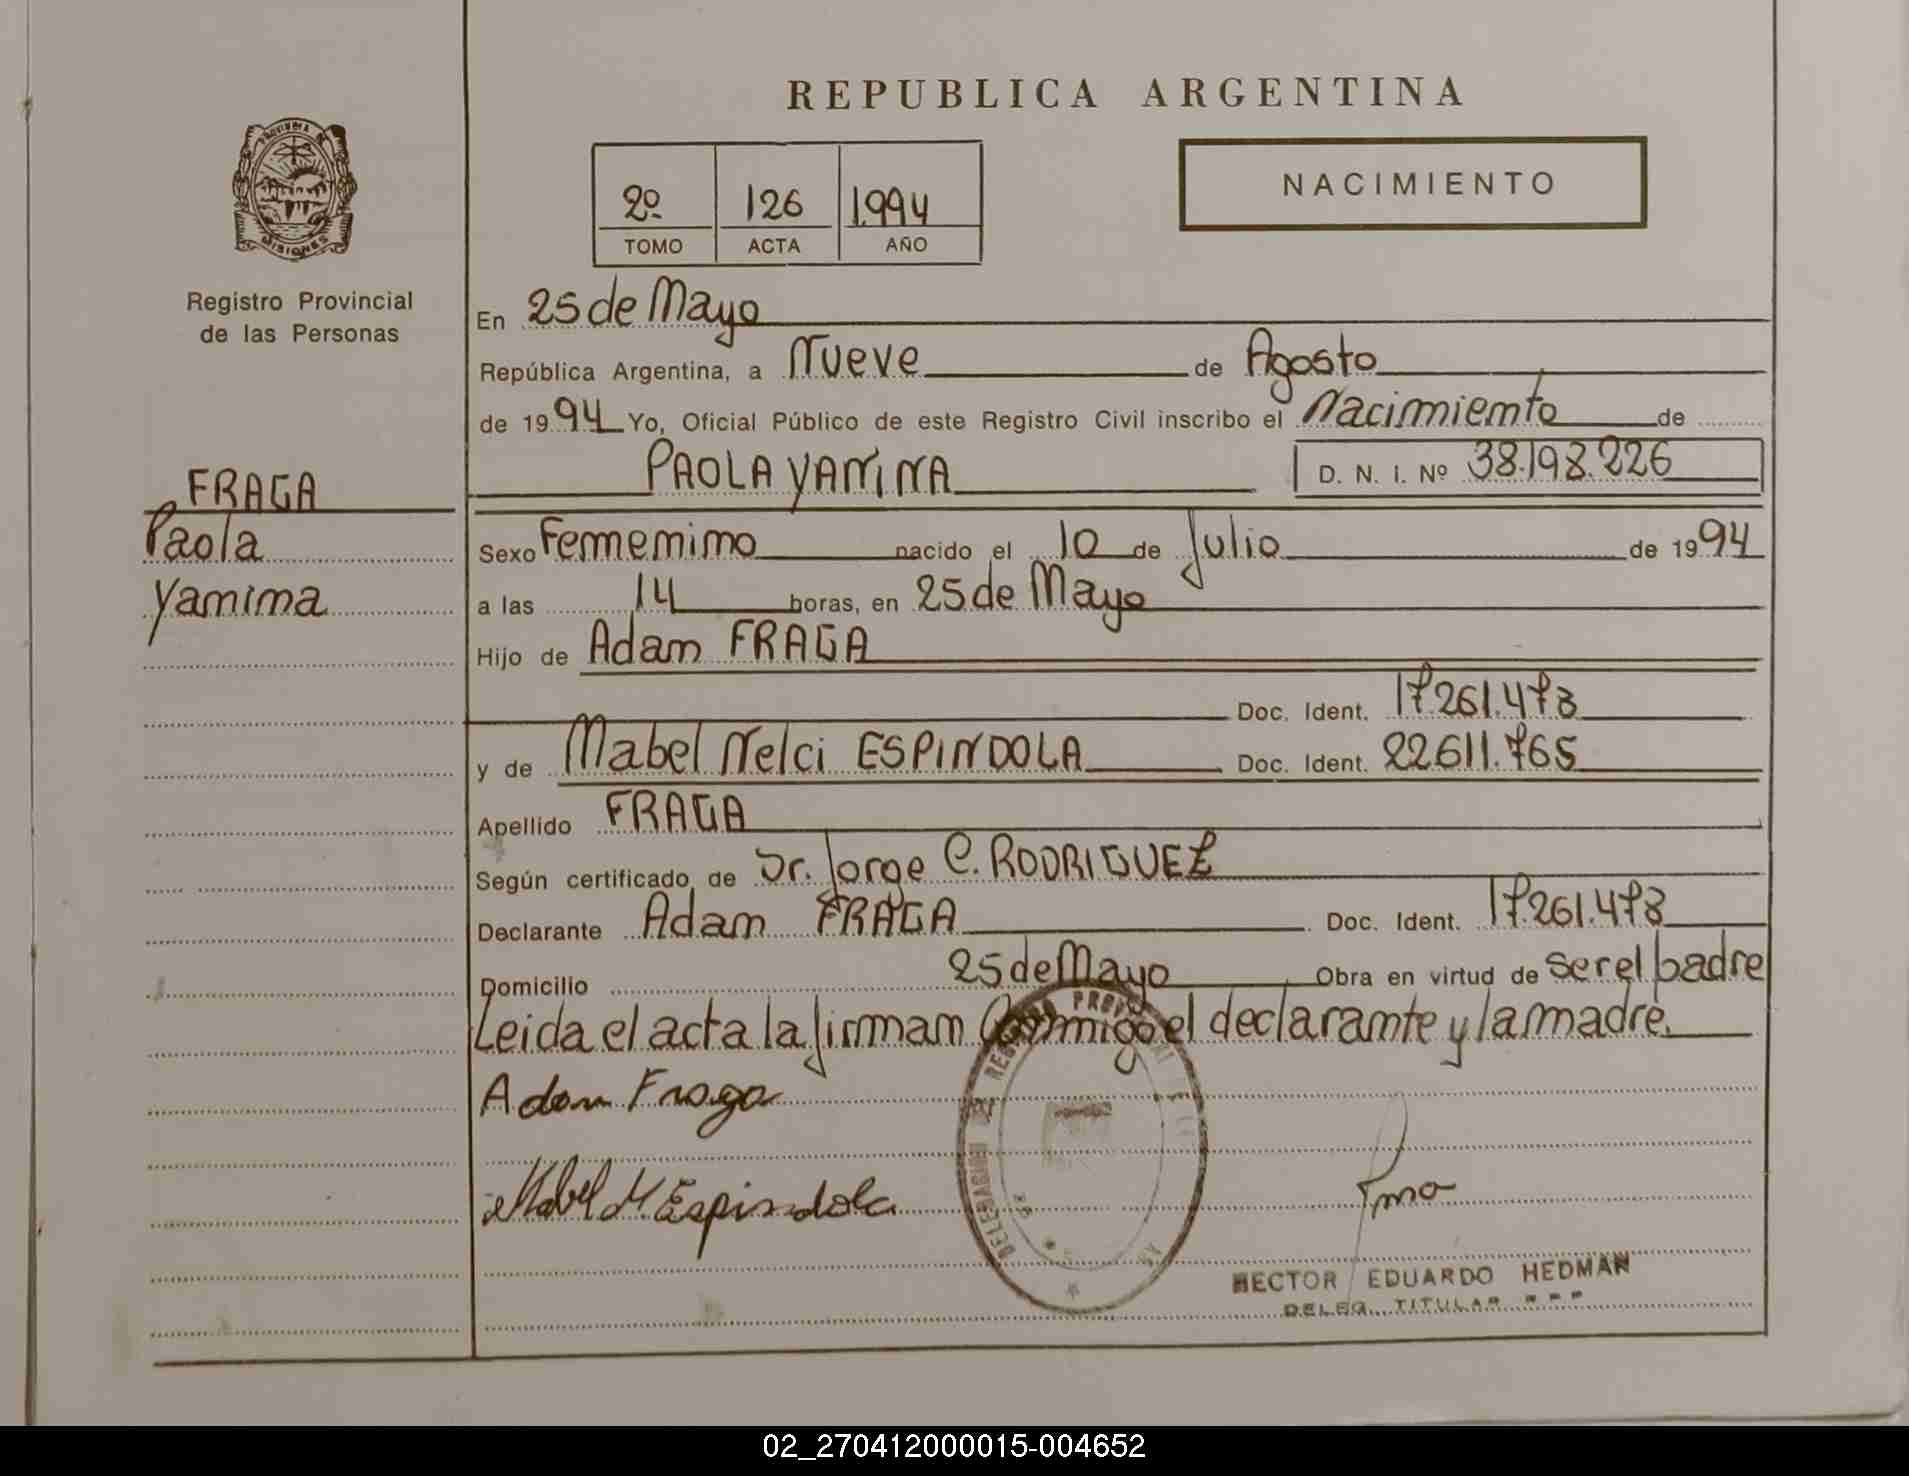 REPUBLICA ARGENTINA
PROVINCIA DE
MISIONES
Registro Provincial
de las Personas
2º 126 1.994
TOMO ACTA AÑO
NACIMIENTO
En 25 de Mayo
República Argentina, a Nueve de Agosto
de 1994 Yo, Oficial Público de este Registro Civil inscribo el Nacimiento de
PAOLA YANINA D. N. I. Nº 38.198.226
FRAGA
Paola
Yanina
Sexo Femenino nacido el 10 de Julio de 1994
a las 14 horas, en 25 de Mayo
Hijo de Adam FRAGA
Doc. Ident. 17.261.473
y de Mabel Nelci ESPINDOLA Doc. Ident. 22611.765
Apellido FRAGA
Según certificado de Dr. Jorge C. RODRIGUEZ
Declarante Adam FRAGA Doc. Ident. 17.261.473
Domicilio 25 de Mayo Obra en virtud de ser el padre
Leida el acta la firman Conmigo el declarante y la madre.
Adam Fraga
Mabel N. Espindola
HECTOR EDUARDO HEDMAN
DELEG. TITULAR R P P
02_270412000015-004652